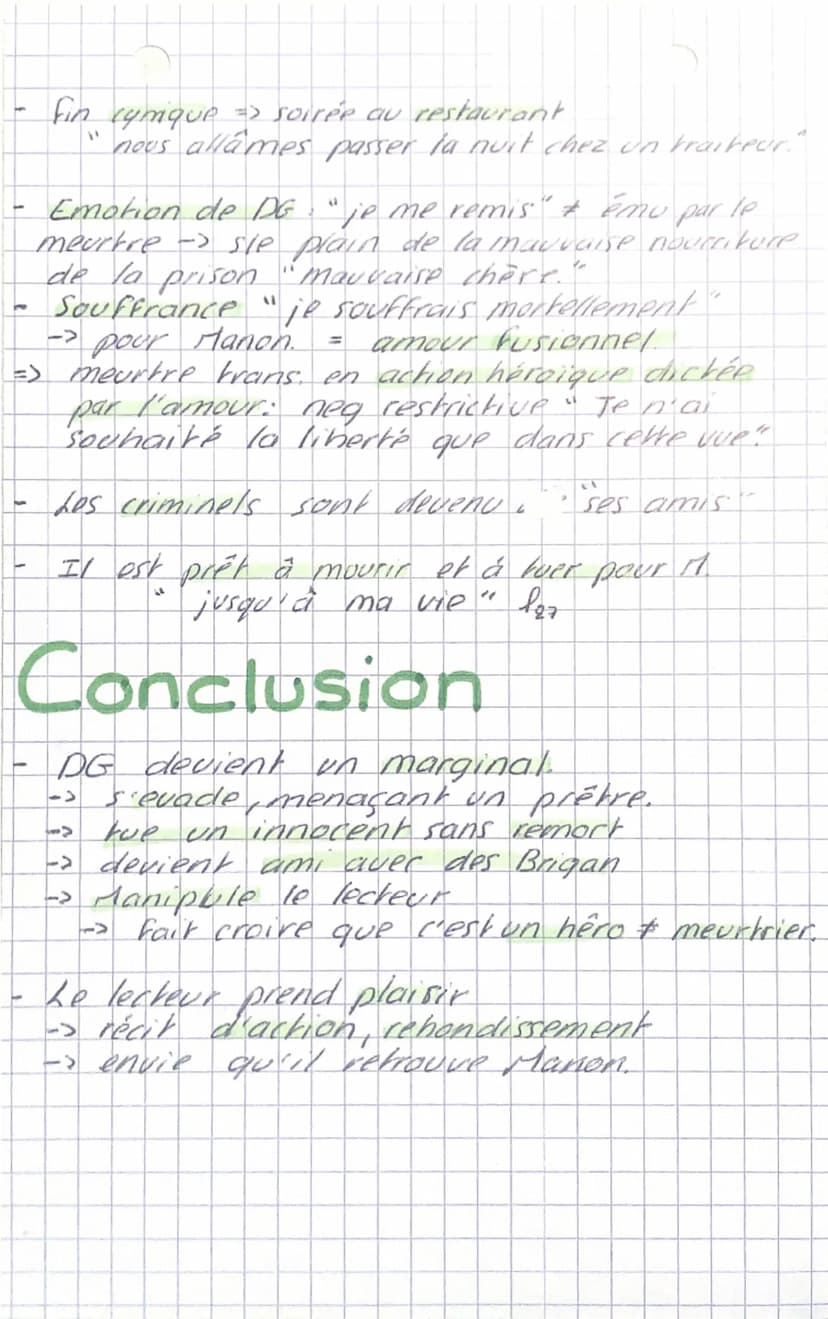 - Fin cynique => soirée au restaurant
" nous allâmes passer la nuit chez un traiteur."
- Emotion de DG : "je me remis" ≠ ému par le
meurtre -> s/e plain de la mauvaise nourriture
de la prison "mauvaise chère."
- Souffrance "je souffrais mortellement"
-> pour Manon. = amour fusionnel.
=> meurtre trans. en action héroïque dictée
par l'amour: neg restrictive " Je n'ai
souhaité la liberté que dans cette vue".
- Les criminels sont devenu : "ses amis"
- Il est prêt à mourir et à tuer pour M.
" jusqu'à ma vie" l27
Conclusion
- DG devient un marginal.
-> s'evade, menaçant un prêtre.
-> tue un innocent sans remort
-> devient ami avec des Brigan
-> Manipule le lecteur
-> Fait croire que c'est un hêro ≠ meurtrier.
- Le lecteur prend plaisir
-> récit d'action, rebondissement
-> envie qu'il retrouve Manon.